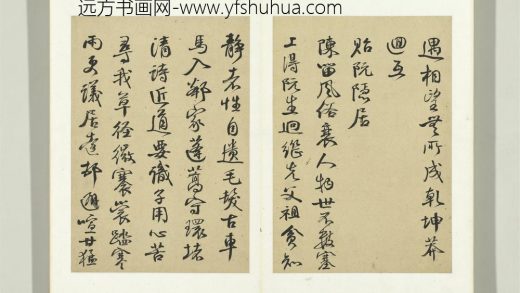 远方书画网-www.yfshuhua.com
遇相望無所成乾坤莽
迴互
貽阮隱居
陳留風俗衰人物世不數塞
上得阮生迥繼先父祖貧知
靜者性自毛髮古車
馬入鄰家蓬蒿環堵
清詩近道要識子用心苦
尋我草徑微褰裳踏寒
雨更議居遠邨避喧甘猛